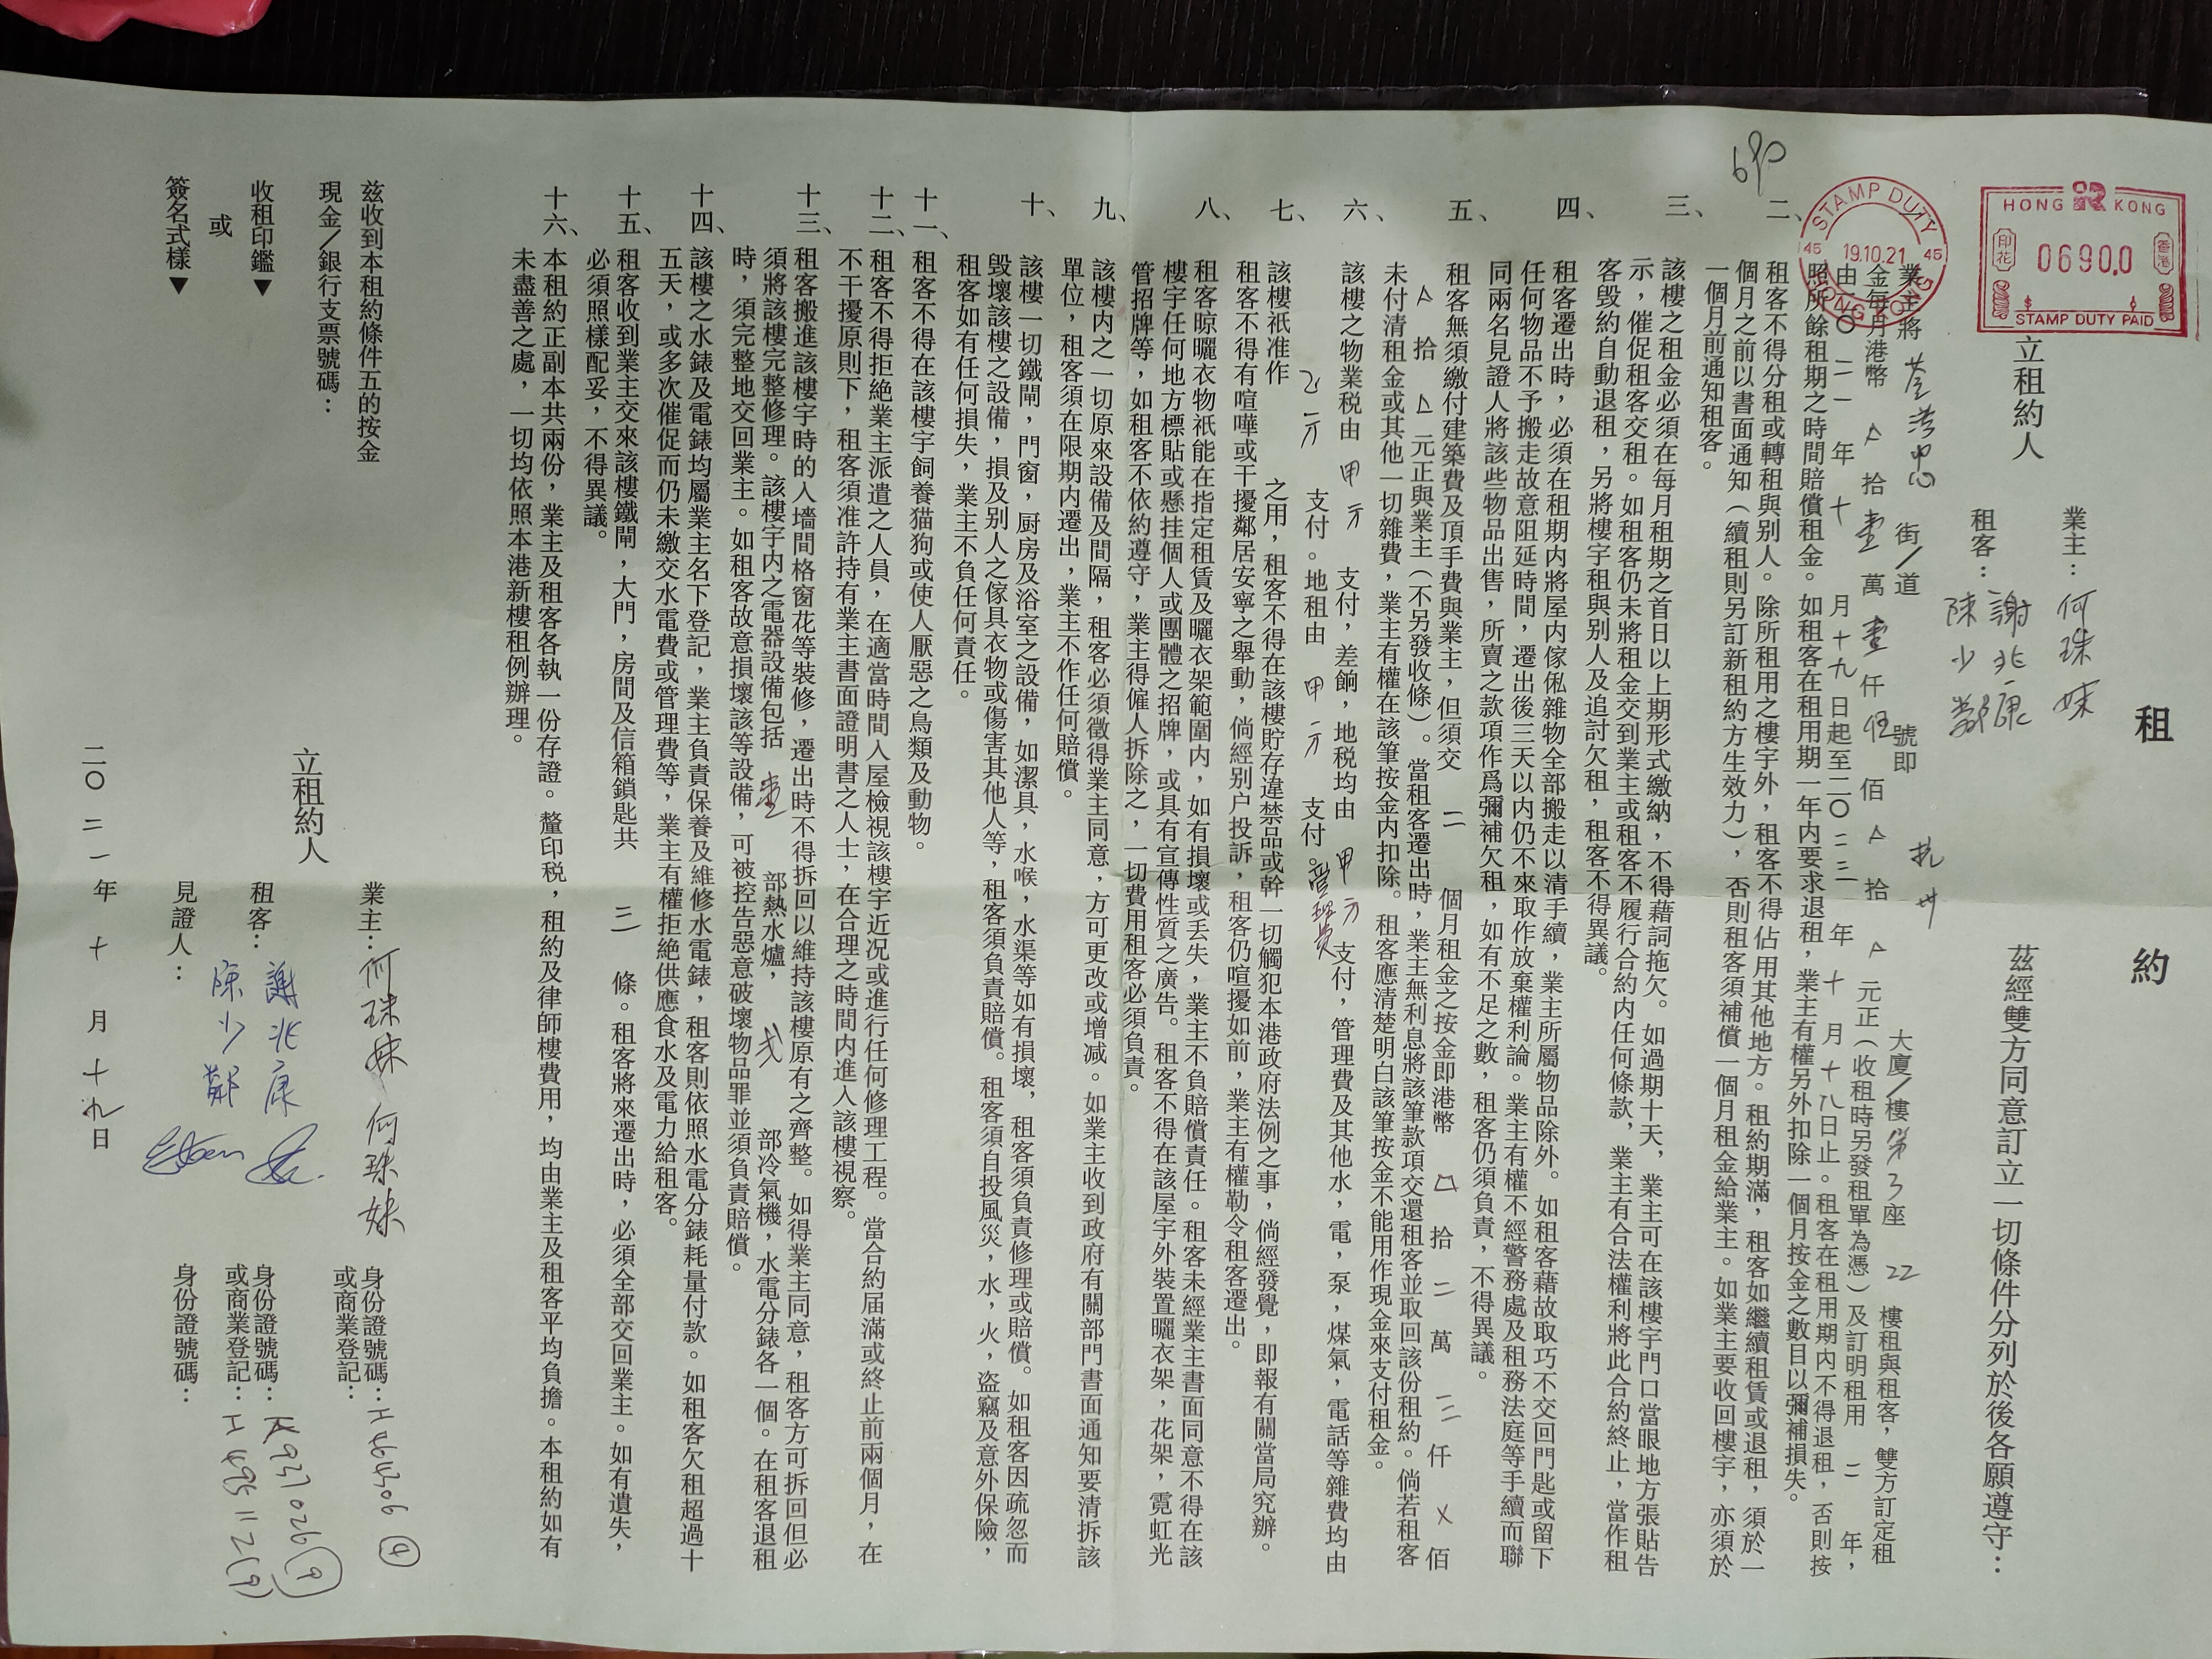 租 約
業主：何珠妹
租客：謝兆康
陳少鄰
立租約人
茲經雙方同意訂立一切條件分列於後各願遵守：
HONG KONG
印花
06900
香港
$ ¢
STAMP DUTY PAID
STAMP DUTY
45 19.10.21 45
HONG KONG
690
業主將 荃灣中心 街／道 號即 大廈／樓 第3座 22 樓租與租客，雙方訂定租
金每月港幣 拾 壹 萬 壹 仟 伍 佰 拾 元正（收租時另發租單為憑）及訂明租用 二 年，
由二〇二一年十月十九日起至二〇二三年十月十八日止。租客在租用期內不得退租，否則按
照所餘租期之時間賠償租金。如租客在租用期一年內要求退租，業主有權另外扣除一個月按金之數目以彌補損失。
二、租客不得分租或轉租與別人。除所租用之樓宇外，租客不得佔用其他地方。租約期滿，租客如繼續租賃或退租，須於一
個月之前以書面通知（續租則另訂新租約方生效力），否則租客須補償一個月租金給業主。如業主要收回樓宇，亦須於
一個月前通知租客。
三、該樓之租金必須在每月租期之首日以上期形式繳納，不得藉詞拖欠。如過期十天，業主可在該樓宇門口當眼地方張貼告
示，催促租客交租。如租客仍未將租金交到業主或租客不履行合約內任何條款，業主有合法權利將此合約終止，當作租
客毀約自動退租，另將樓宇租與別人及追討欠租，租客不得異議。
四、租客遷出時，必須在租期內將屋內傢俬雜物全部搬走以清手續，業主所屬物品除外。如租客藉故取巧不交回門匙或留下
任何物品不予搬走故意阻延時間，遷出後三天以內仍不來取作放棄權利論。業主有權不經警務處及租務法庭等手續而聯
同兩名見證人將該些物品出售，所賣之款項作爲彌補欠租，如有不足之數，租客仍須負責，不得異議。
五、租客無須繳付建築費及頂手費與業主，但須交 二 個月租金之按金即港幣 拾 二 萬 三 仟 佰
拾 元正與業主（不另發收條）。當租客遷出時，業主無利息將該筆款項交還租客並取回該份租約。倘若租客
未付清租金或其他一切雜費，業主有權在該筆按金內扣除。租客應清楚明白該筆按金不能用作現金來支付租金。
六、該樓之物業税由 甲方 支付，差餉，地税均由 甲方 支付，管理費及其他水，電，泵，煤氣，電話等雜費均由
乙方 支付。地租由 甲方 支付。管理費
七、該樓祇准作 之用，租客不得在該樓貯存違禁品或幹一切觸犯本港政府法例之事，倘經發覺，即報有關當局究辦。
租客不得有喧嘩或干擾鄰居安寧之舉動，倘經别户投訴，租客仍喧擾如前，業主有權勒令租客遷出。
八、租客晾曬衣物祇能在指定租賃及曬衣架範圍內，如有損壞或丢失，業主不負賠償責任。租客未經業主書面同意不得在該
樓宇任何地方標貼或懸挂個人或團體之招牌，或具有宣傳性質之廣告。租客不得在該屋宇外裝置曬衣架，花架，霓虹光
管招牌等，如租客不依約遵守，業主得僱人拆除之，一切費用租客必須負責。
九、該樓內之一切原來設備及間隔，租客必須徵得業主同意，方可更改或增減。如業主收到政府有關部門書面通知要清拆該
單位，租客須在限期内遷出，業主不作任何賠償。
十、該樓一切鐵閘，門窗，厨房及浴室之設備，如潔具，水喉，水渠等如有損壞，租客須負責修理或賠償。如租客因疏忽而
毁壞該樓之設備，損及別人之傢具衣物或傷害其他人等，租客須負責賠償。租客須自投風災，水，火，盗竊及意外保險，
租客如有任何損失，業主不負任何責任。
十一、租客不得在該樓宇飼養猫狗或使人厭惡之鳥類及動物。
十二、租客不得拒絶業主派遣之人員，在適當時間入屋檢視該樓宇近況或進行任何修理工程。當合約届滿或終止前兩個月，在
不干擾原則下，租客須准許持有業主書面證明書之人士，在合理之時間內進入該樓視察。
十三、租客搬進該樓宇時的入墻間格窗花等裝修，遷出時不得拆回以維持該樓原有之齊整。如得業主同意，租客方可拆回但必
須將該樓完整修理。該樓宇內之電器設備包括 壹 部熱水爐， 弍 部冷氣機，水電分錶各一個。在租客退租
時，須完整地交回業主。如租客故意損壞該等設備，可被控告惡意破壞物品罪並須負責賠償。
十四、該樓之水錶及電錶均屬業主名下登記，業主負責保養及維修水電錶，租客則依照水電分錶耗量付款。如租客欠租超過十
五天，或多次催促而仍未繳交水電費或管理費等，業主有權拒絶供應食水及電力給租客。
十五、租客收到業主交來該樓鐵閘，大門，房間及信箱鎖匙共 三 條。租客將來遷出時，必須全部交回業主。如有遺失，
必須照樣配妥，不得異議。
十六、本租約正副本共兩份，業主及租客各執一份存證。釐印税，租約及律師樓費用，均由業主及租客平均負擔。本租約如有
未盡善之處，一切均依照本港新樓租例辦理。
茲收到本租約條件五的按金
現金／銀行支票號碼：
收租印鑑▼
或
簽名式樣▼
立租約人
業主：何珠妹 何珠妹
身份證號碼：H464306(4)
或商業登記：
租客：謝兆康
陳少鄰
身份證號碼：K937026(9)
或商業登記：H495112(9)
見證人：
身份證號碼：
二〇二一年十月十九日